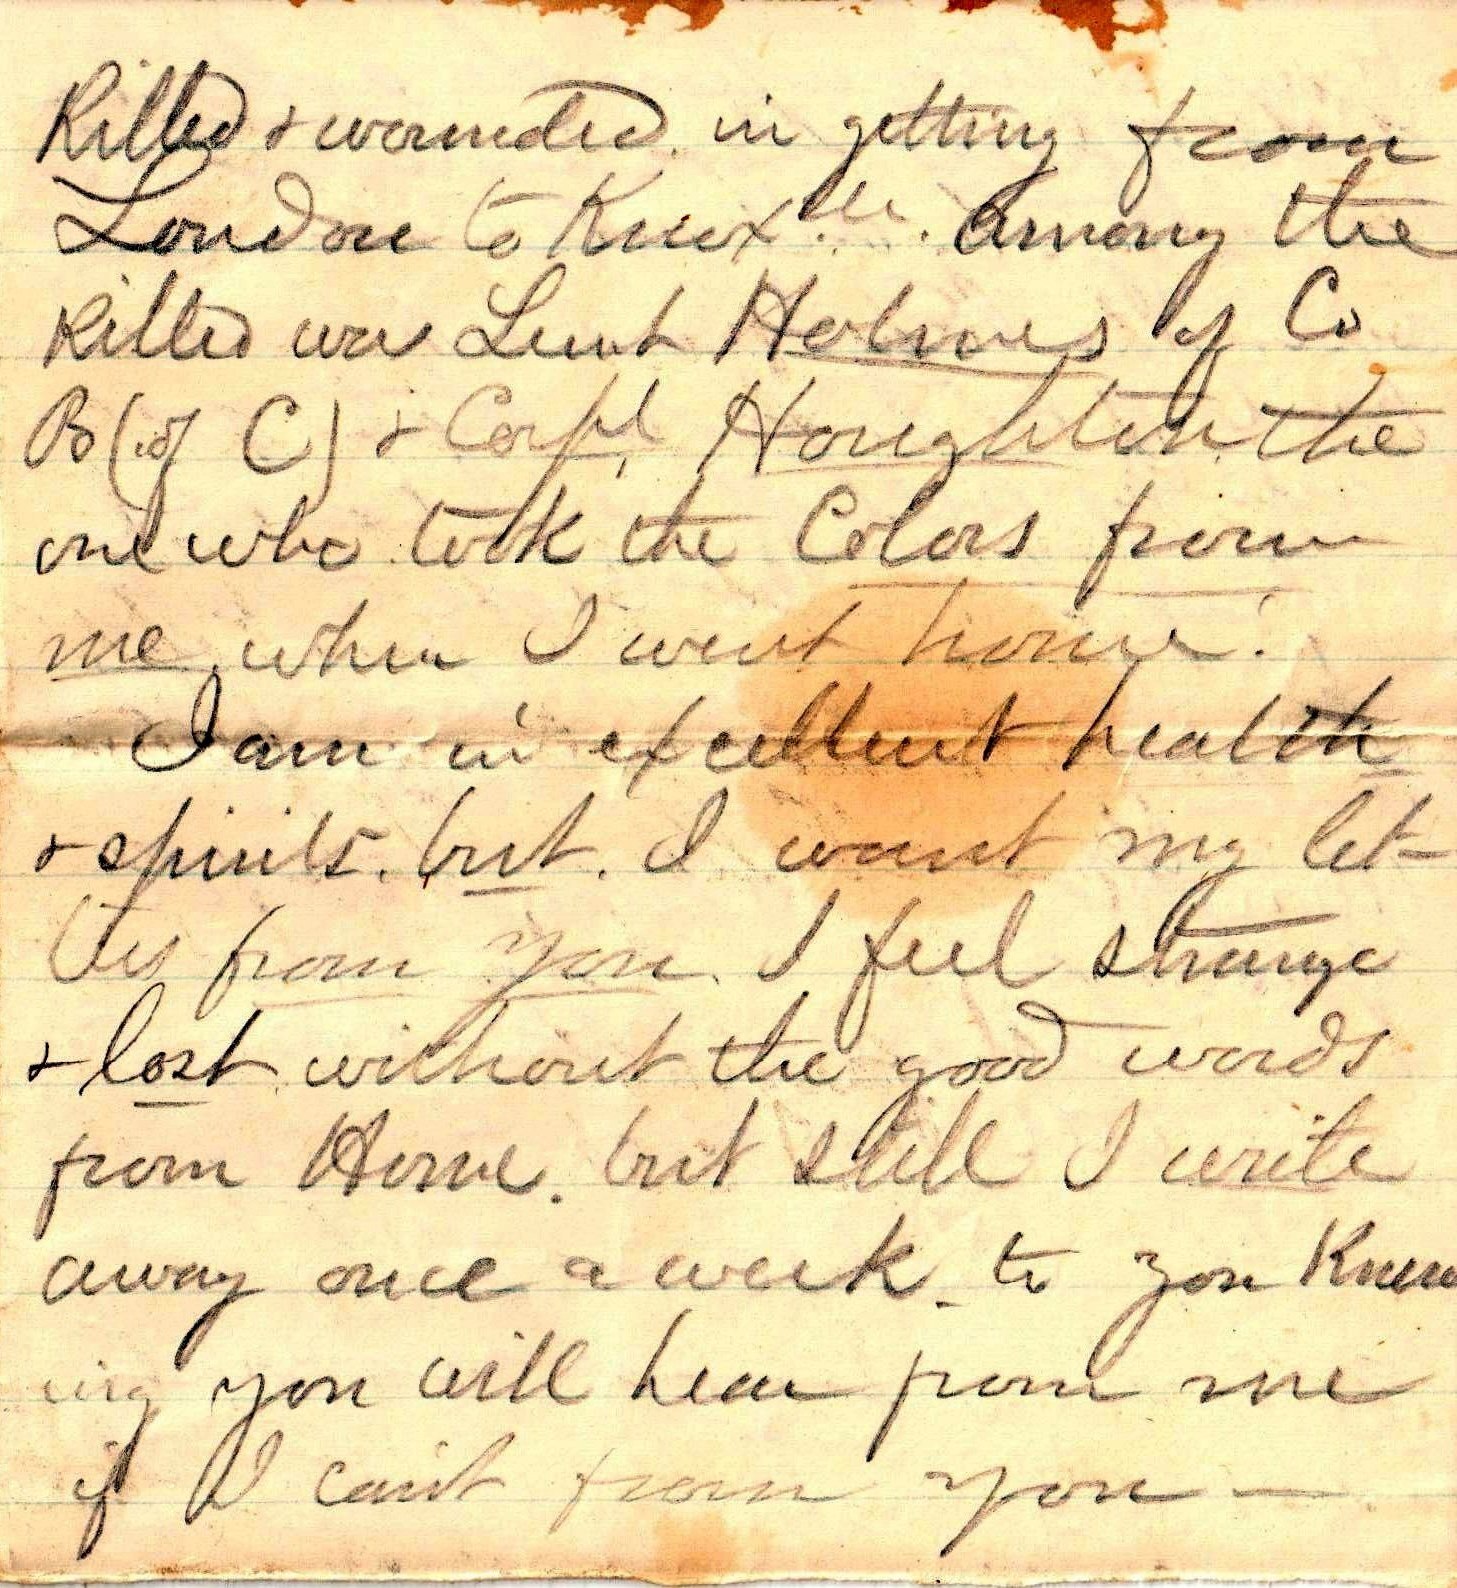 Killed & wounded. in getting from
London to Knoxlle. Among the
Killed was Lieut Holmes of Co
B (of C) & Corpl. Houghton. the
one who took the Colors from
me. when I went home.
I am in excellent health
& spirits. but. I want my let-
ters from you. I feel strange
& lost without the good words
from Home. but still I write
away once a week. to you Know
ing you will hear from me
if I can't from you —